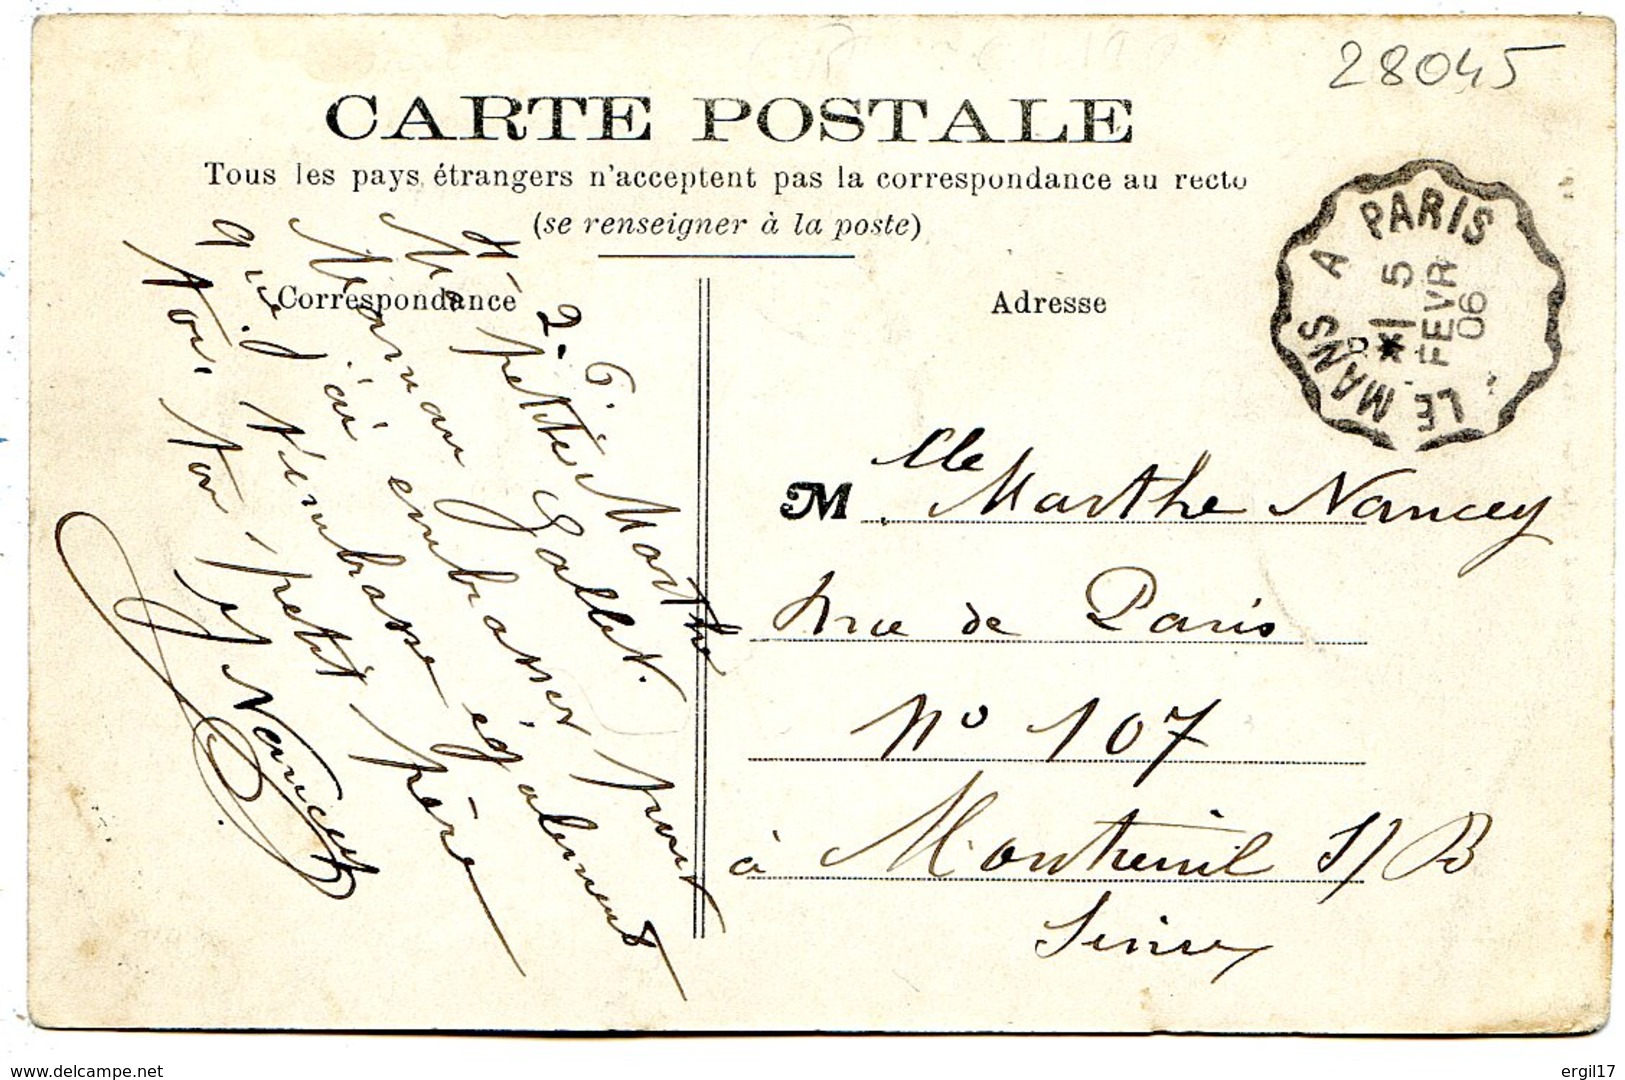 28045
CARTE POSTALE
Tous les pays étrangers n'acceptent pas la correspondance au recto
(se renseigner à la poste)
Correspondance
Adresse
LE MANS A PARIS
*1 5
FEVR
06
4. 2. 6.
Ma petite Marthe
Maman Gallet.
que j'ai embrasser pour
toi, t'embrasse également
ton petit père
J Nancey
M lle Marthe Nancey
Rue de Paris
No 107
à Montreuil S/B
Seine
www.delcampe.net
ergil17